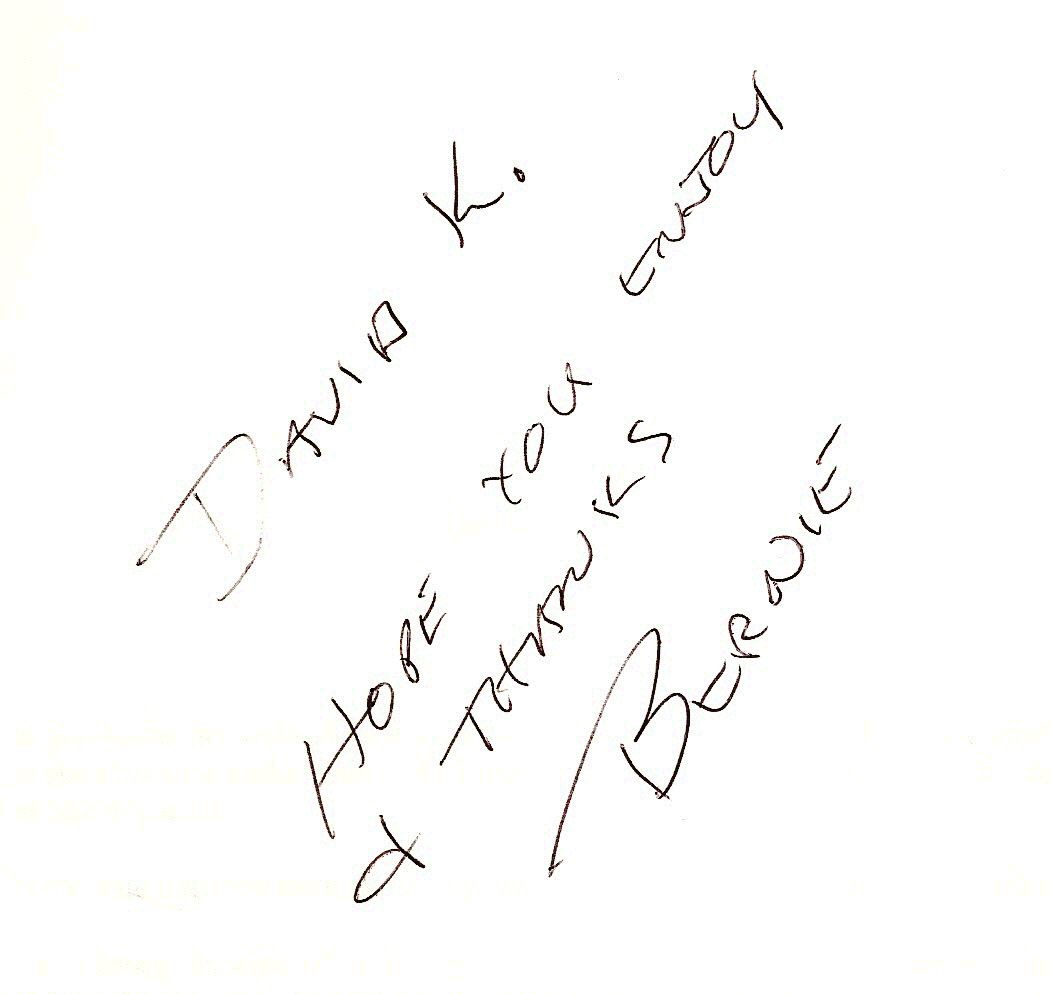 DAVID K.
HOPE YOU ENJOY
& THANKS
BERNIE